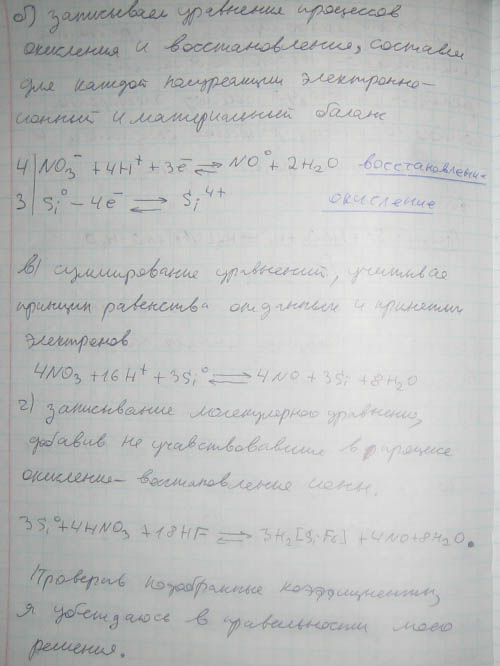 б) записываем уравнения процессов
окисления и восстановления, составляем
для каждой полуреакции электронно-
ионный и материальный баланс
4 | NO₃⁻ + 4H⁺ + 3e̅ ⇄ NO⁰ + 2H₂O восстановление
3 | Si⁰ − 4e̅ ⇄ Si⁴⁺ окисление
в) суммирование уравнений, учитывая
принцип равенства отданных и принятых
электронов
4NO₃ + 16H⁺ + 3Si⁰ ⇄ 4NO + 3Si + 8H₂O
г) записывание молекулярного уравнения,
добавив не учавствовавшие в процессе
окисление-восстановления ионы.
3Si⁰ + 4HNO₃ + 18HF ⇄ 3H₂[SiF₆] + 4NO + 8H₂O.
Проверив подобранные коэффициенты,
я убеждаюсь в правильности моего
решения.